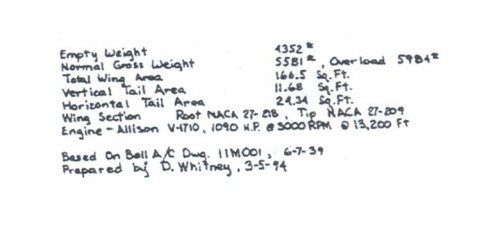 Empty Weight 4352#
Normal Gross Weight 5581#, Overload 5984#
Total Wing Area 166.5 Sq.Ft.
Vertical Tail Area 11.68 Sq.Ft.
Horizontal Tail Area 24.34 Sq.Ft.
Wing Section Root NACA 27-218, Tip NACA 27-209
Engine - Allison V-1710, 1090 H.P. @ 3000 RPM @ 13,200 Ft
Based On Bell A/C Dwg. 11M001, 6-7-39
Prepared by D. Whitney, 3-5-94